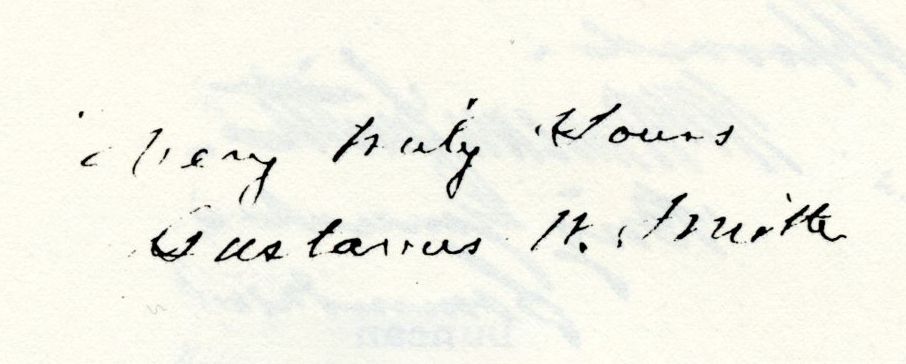 Very truly Yours
Gustavus W. Smith